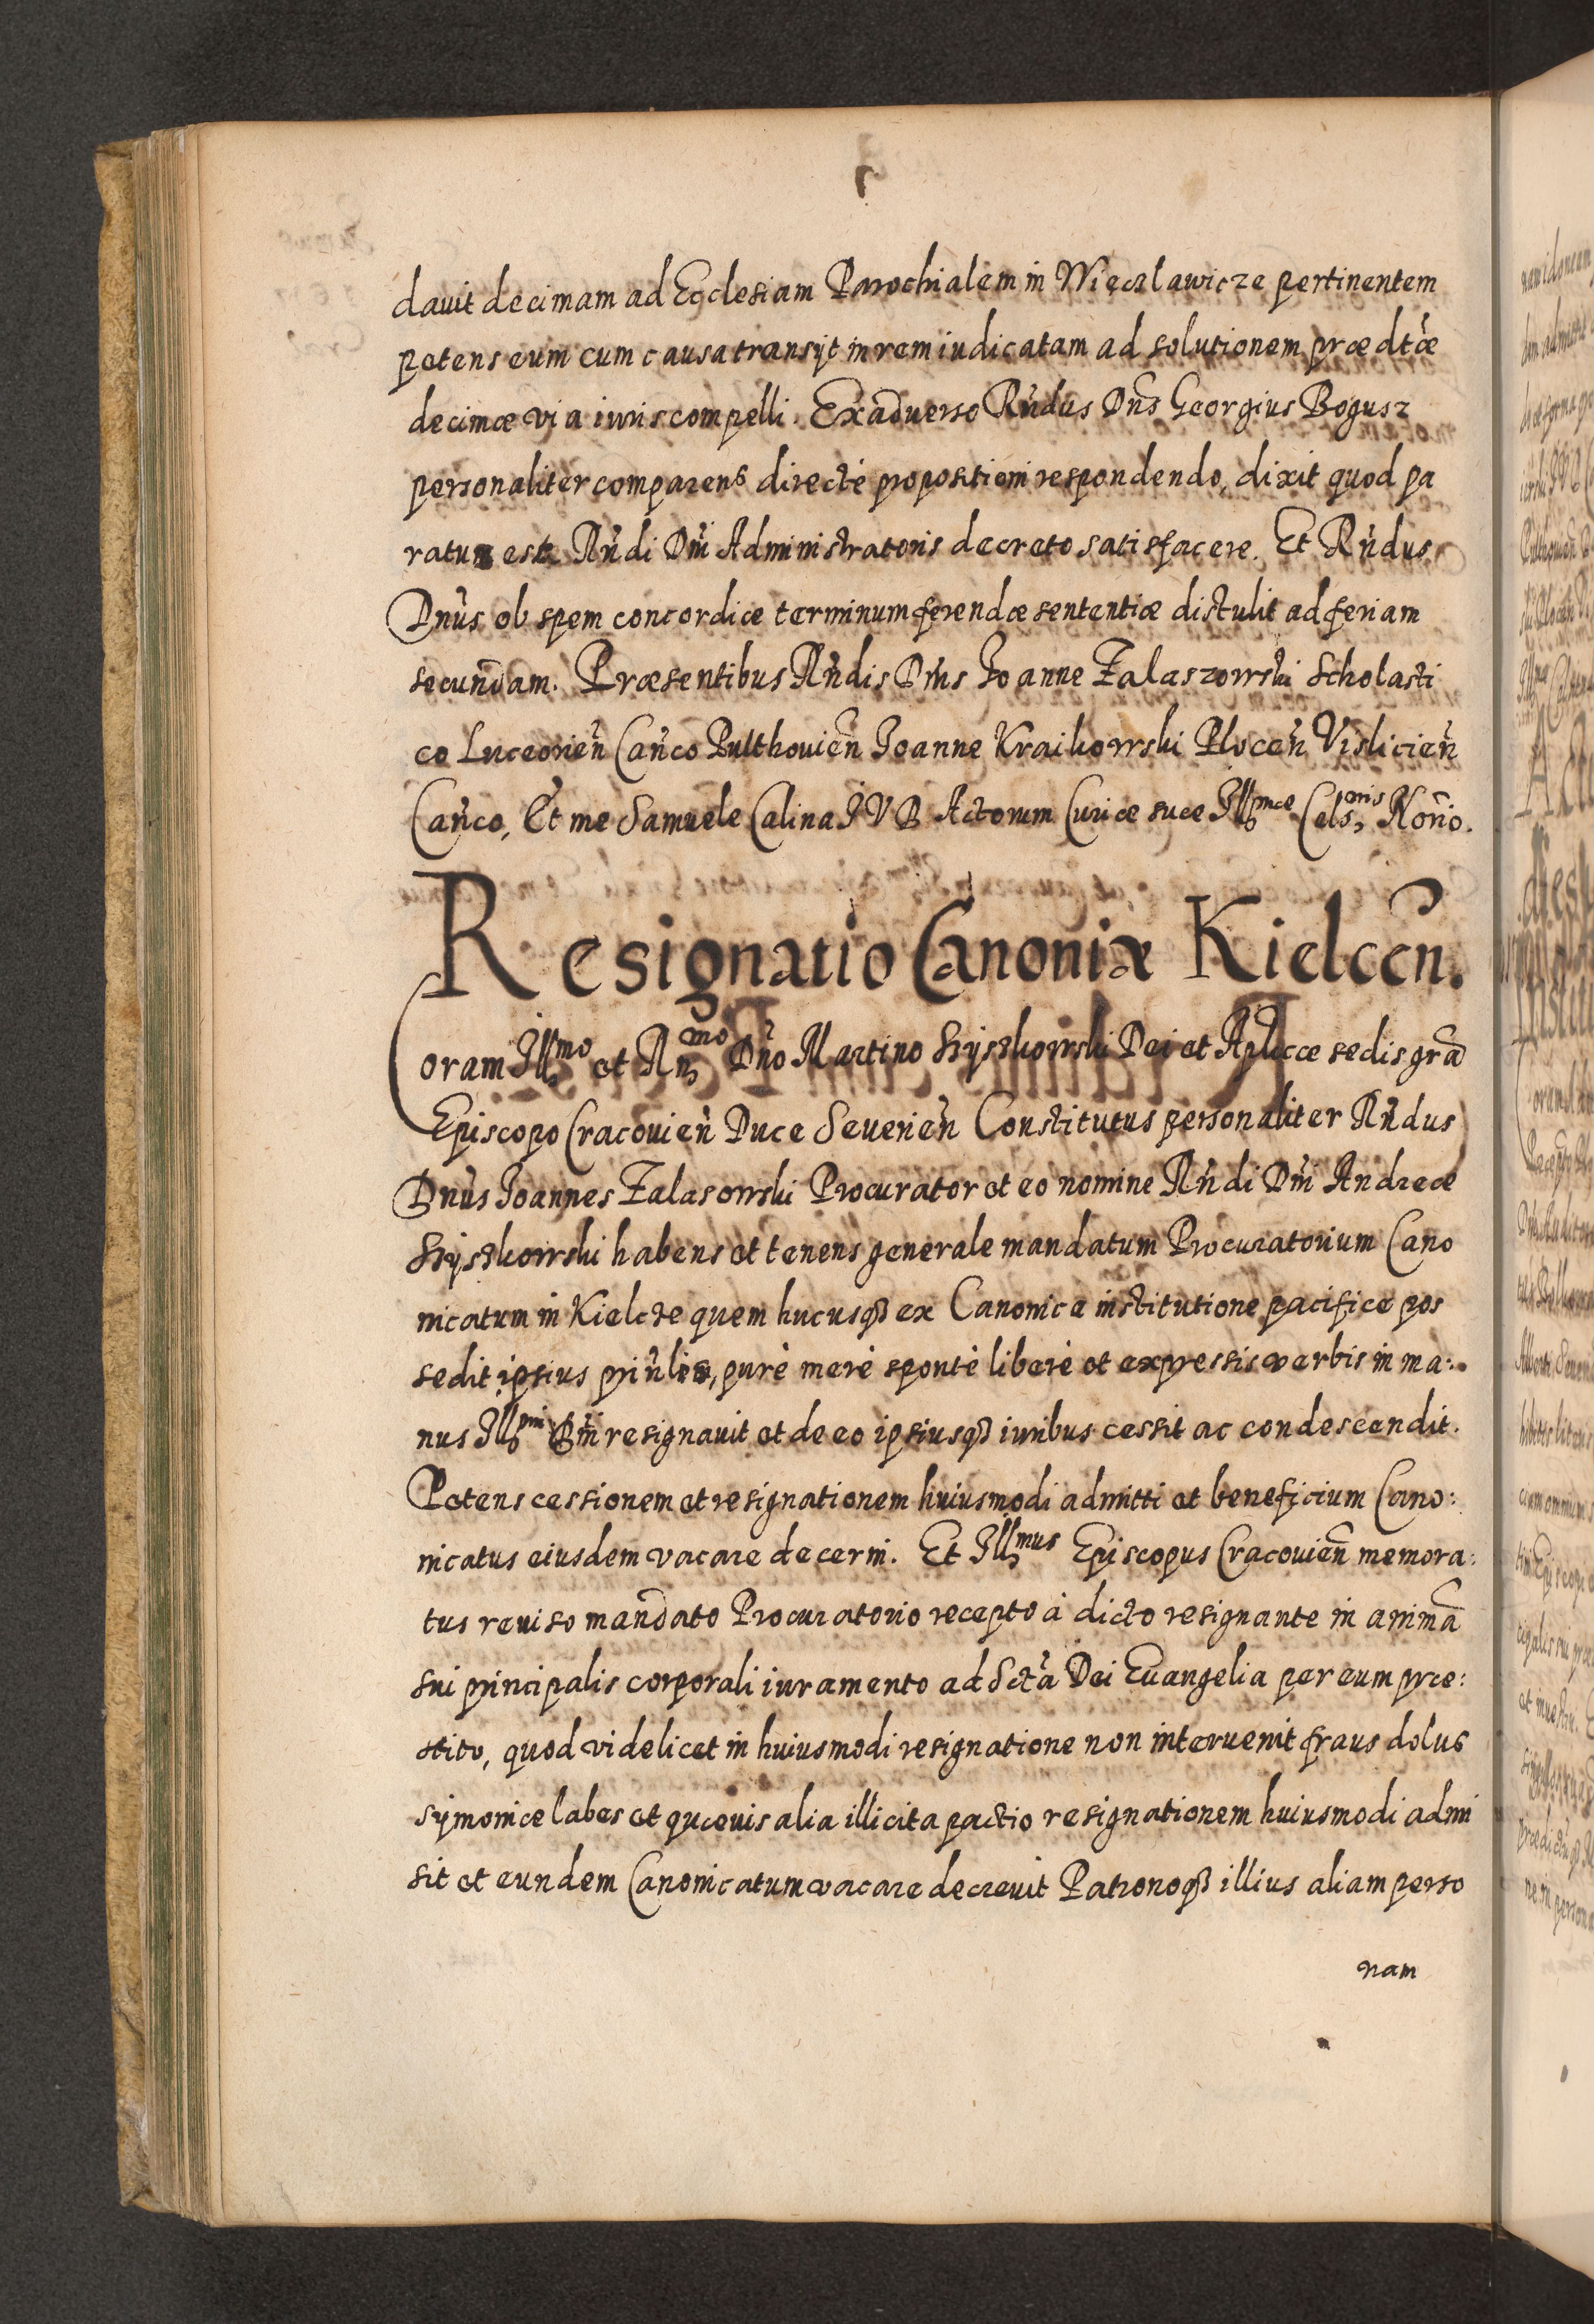 dauit decimam ad Ecclesiam Parochialem in Wieczlawicze pertinentem
petens eum cum causa transijt in rem iudicatam ad solutionem præ dtæ
decimæ via iuris compelli. Ex aduerso Rñdus Dñs Georgius Bogusz
personaliter comparens directè propositioni respondendo, dixit quod pa
ratum est Rñdi Dñi Administratoris decreto satisfacere. Et Rñdus
Dñus ob spem concordiæ terminum ferendæ sententiæ distulit ad feriam
secundam. Præsentibus Rñdis Dñis Joanne Zalaszowski Scholasti
co Luceorieñ Cañco Pulthouieñ Joanne Kraikowski Ploceñ Vislicieñ
Cañco, Et me Samuele Calina JVD Actorum Curiæ suæ Illmæ Celsnis Notrio.
Resignatio Canoniæ Kielceñ.
Coram Illmo et Rmo Dño Martino Szyszkowski Dei et Aplicæ sedis grã
Episcopo Cracouieñ Duce Seuerieñ Constitutus personaliter Rñdus
Dñus Joannes Zalasowski Procurator et eo nomine Rñdi Dñi Andreæ
Szyszkowski habens et tenens generale mandatum Procuratorium Cano
nicatum in Kielcze quem hucusq3 ex Canonica institutione pacifice pos
sedit ipsius priñlis, purè merè spontè liberè et expressis verbis in ma:
nus Illmi Dñi resignauit et de eo ipsiusq3 iuribus cessit ac condescendit.
Petens cessionem et resignationem huiusmodi admitti et beneficium Cano:
nicatus eiusdem vacare decerni. Et Illmus Episcopus Cracouieñ memora:
tus reuiso mandato Procuratorio recepto à dicto resignante in animã
sui principalis corporali iuramento ad Sctã Dei Euangelia per eum præ:
stito, quod videlicet in huiusmodi resignatione non interuenit fraus dolus
symoniæ labes et quæuis alia illicita pactio resignationem huiusmodi admi
sit et eundem Canonicatum vacare decreuit Patronoq3 illius aliam perso
nam